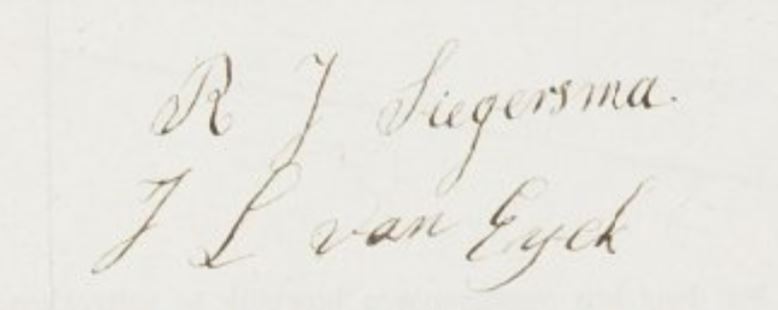 R J Siegersma.
J L van Eyck